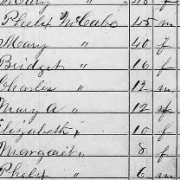 Mary " 48 f
Phelix McCabe 45 m
Mary " 40 f
Bridget " 16 f
Charles " 12 m
Mary A " 12 f
Elizabeth " 10 f
Margaret " 8 f
Phelix " 6 m